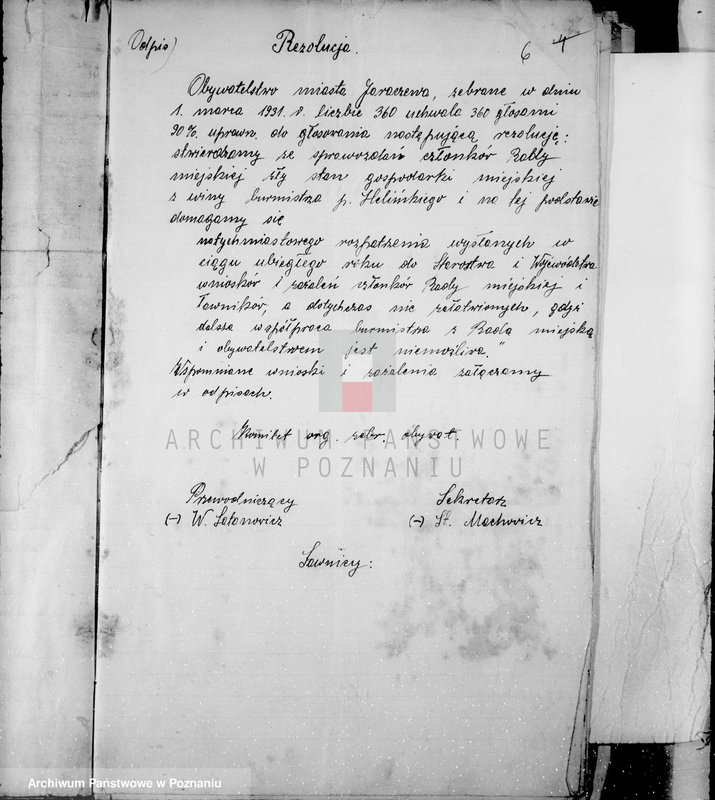 Odpis)
Rezolucja.
6 4
Obywatelstwo miasta Jaraczewa, zebrane w dniu
1. marca 1931. r. liczbie 360 uchwala 360 głosami
90%. uprawn. do głosowania następującą rezolucję:
stwierdzamy ze sprawozdań członków Rady
miejskiej zły stan gospodarki miejskiej
z winy burmistrza p. Helińskiego i na tej podstawie
domagamy się
natychmiastowego rozpatrzenia wysłanych w
ciągu ubiegłego roku do Starostwa i Województwa
wniosków i zażaleń członków Rady miejskiej i
Ławników, a dotychczas nie załatwionych, gdyż
dalsza współpraca burmistrza z Radą miejską
i obywatelstwem jest niemożliwa."
Wspomniane wnioski i zażalenia załączamy
w odpisach.
Komitet org. zebr. obywat.
ARCHIWUM PAŃSTWOWE
W POZNANIU
Przewodniczący
Sekretarz
(-) W. Latanowicz
(-) St. Machowicz
Ławnicy:
Archiwum Państwowe w Poznaniu